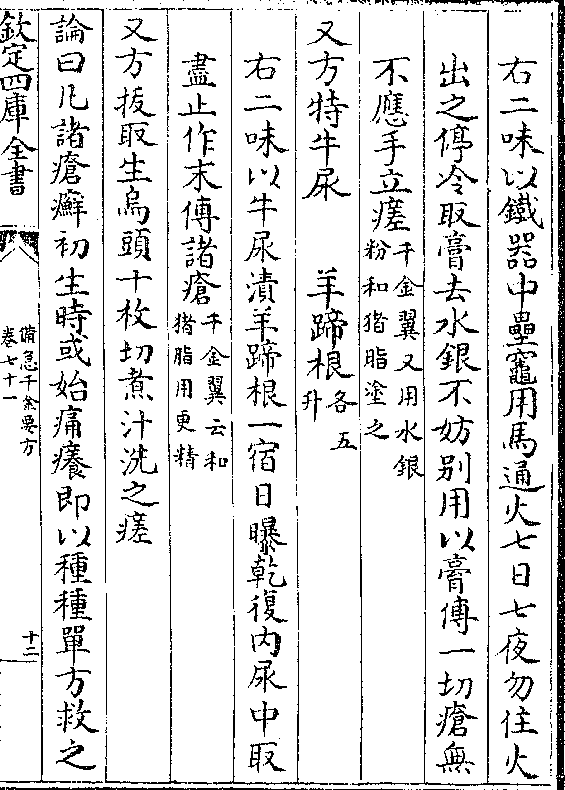 右二味以鐵器中壘竈用馬通火七日七夜勿住火
出之停冷取膏去水銀不妨別用以膏傅一切瘡無
不應手立瘥千金翼又用水銀
粉和猪脂塗之
又方特牛尿　羊蹄根各五
升
右二味以牛尿漬羊蹄根一宿日曝乾復內尿中取
盡止作末傅諸瘡千金翼云和
猪脂用更精
又方拔取生烏頭十枚切煮汁洗之瘥
論曰凡諸瘡癬初生時或始痛癢即以種種單方救之
欽定四庫全書
備急千金要方
卷七十一
十二